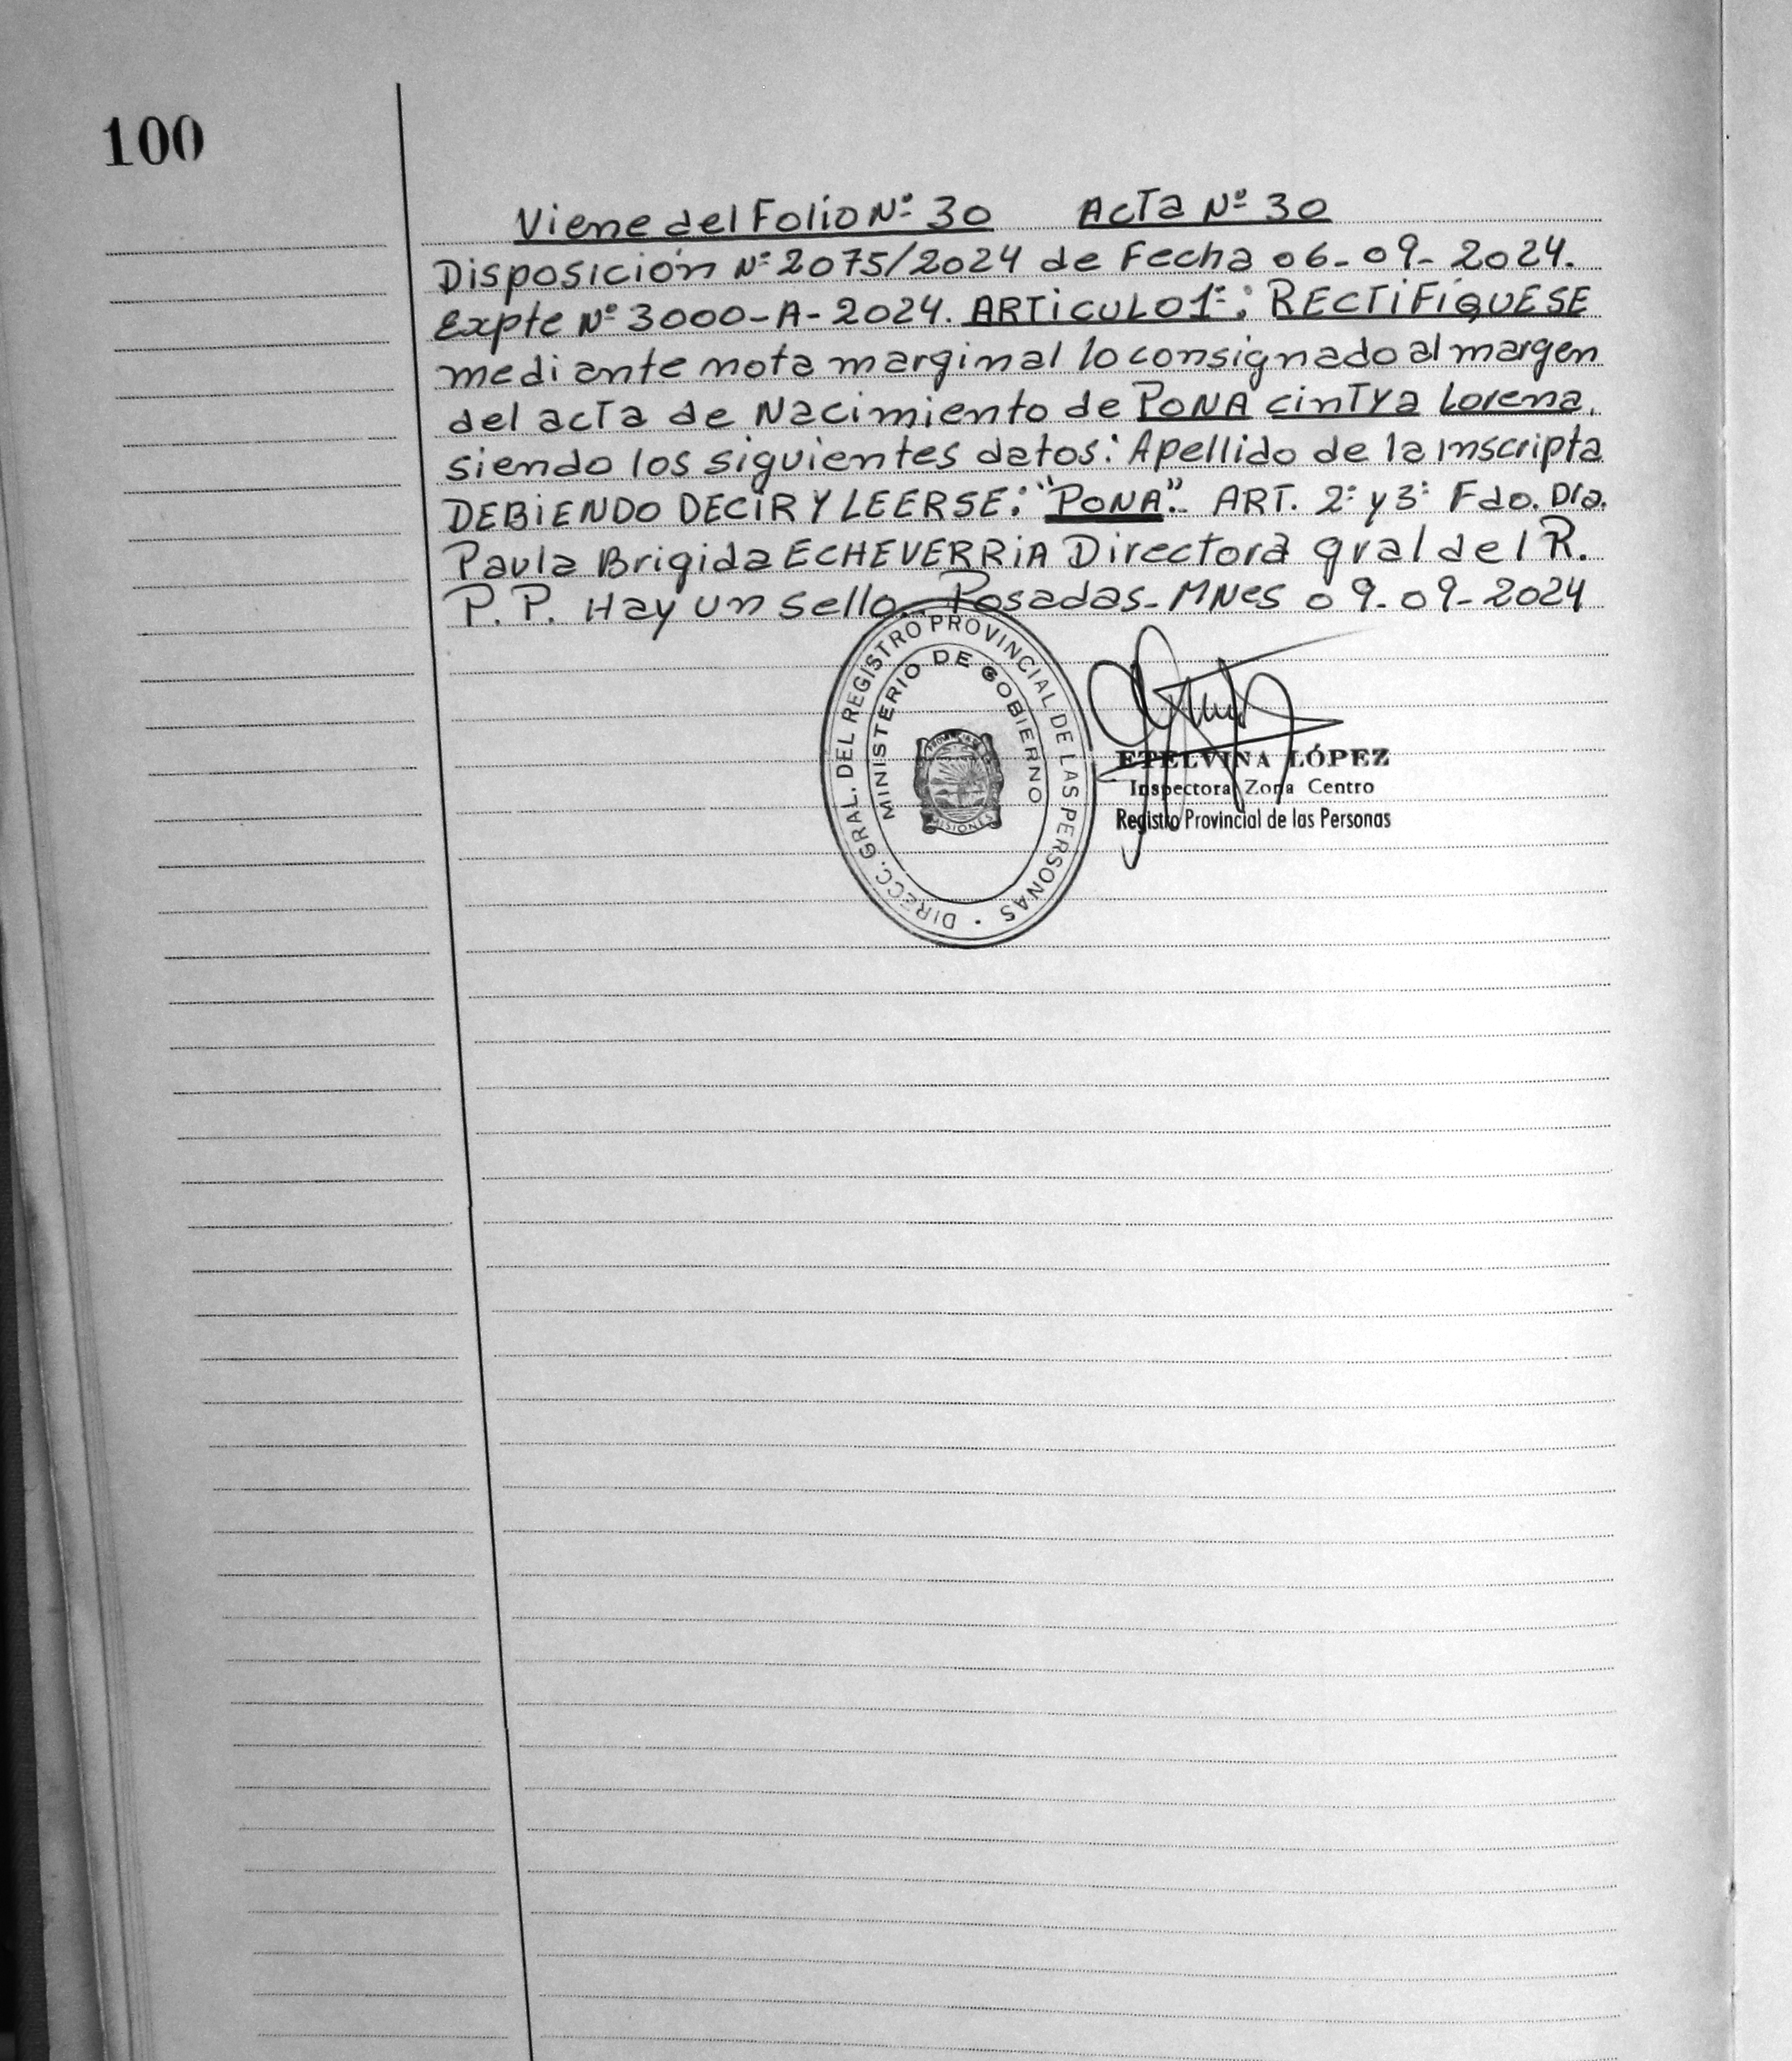 100
Viene del Folio Nº 30 Acta Nº 30
Disposición Nº 2075/2024 de Fecha 06-09-2024.
Expte Nº 3000-A-2024. ARTiCULO 1º: RECTiFÍQUESE
mediante nota marginal lo consignado al margen
del acta de Nacimiento de PONA cinTya Lorena,
siendo los siguientes datos: Apellido de la inscripta
DEBiENDO DECIR Y LEERSE: "PONA". ART. 2º y 3º Fdo. Dra.
Paula Brigida ECHEVERRiA Directora gral del R.
P.P. Hay un sello. Posadas-MNes 09-09-2024
DIRECC. GRAL. DEL REGISTRO PROVINCIAL DE LAS PERSONAS
MINISTERIO DE GOBIERNO
PROVINCIA DE
MISIONES
ETELVINA LÓPEZ
Inspectora Zona Centro
Registro Provincial de las Personas